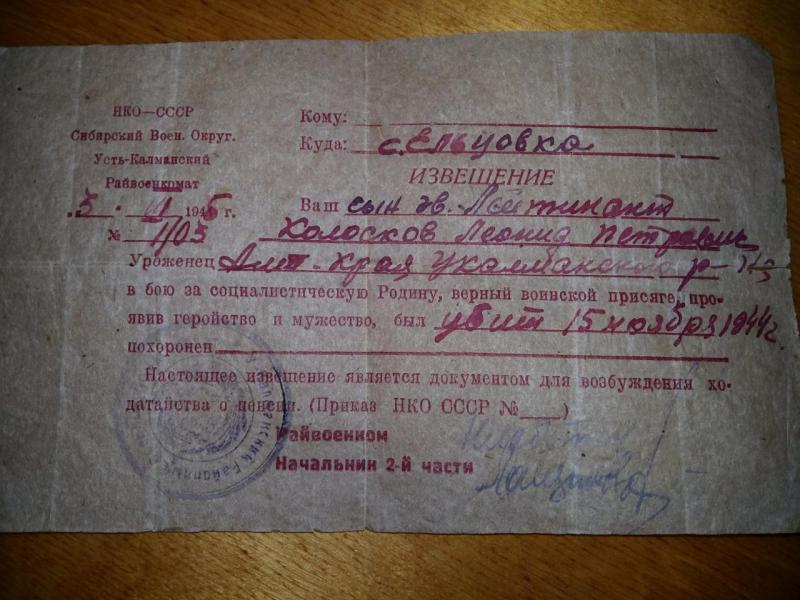 НКО—СССР
Сибирский Воен. Округ.
Усть-Калманский
Райвоенкомат
3 · VI 1945 г.
№ 1103
Кому:
Куда: с. Ельцовка
ИЗВЕЩЕНИЕ
Ваш сын гв. Лейтинант
Холосков Леонид Петрович
Уроженец Алт-Края Укалманского р-на
в бою за социалистическую Родину, верный воинской присяге, про-
явив геройство и мужество, был убит 15 ноября 1944 г.
похоронен
Настоящее извещение является документом для возбуждения хо-
датайства о пенсии. (Приказ НКО СССР № )
Райвоенком
Начальник 2-й части